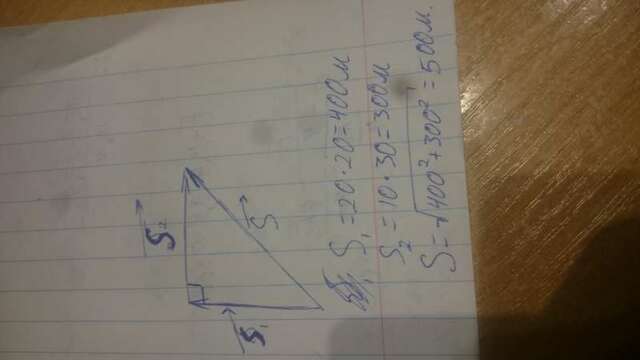 S₂
S
S₁
S₁ = 20·20=400м
S₂ = 10·30=300м
S=√400²+300² = 500м.